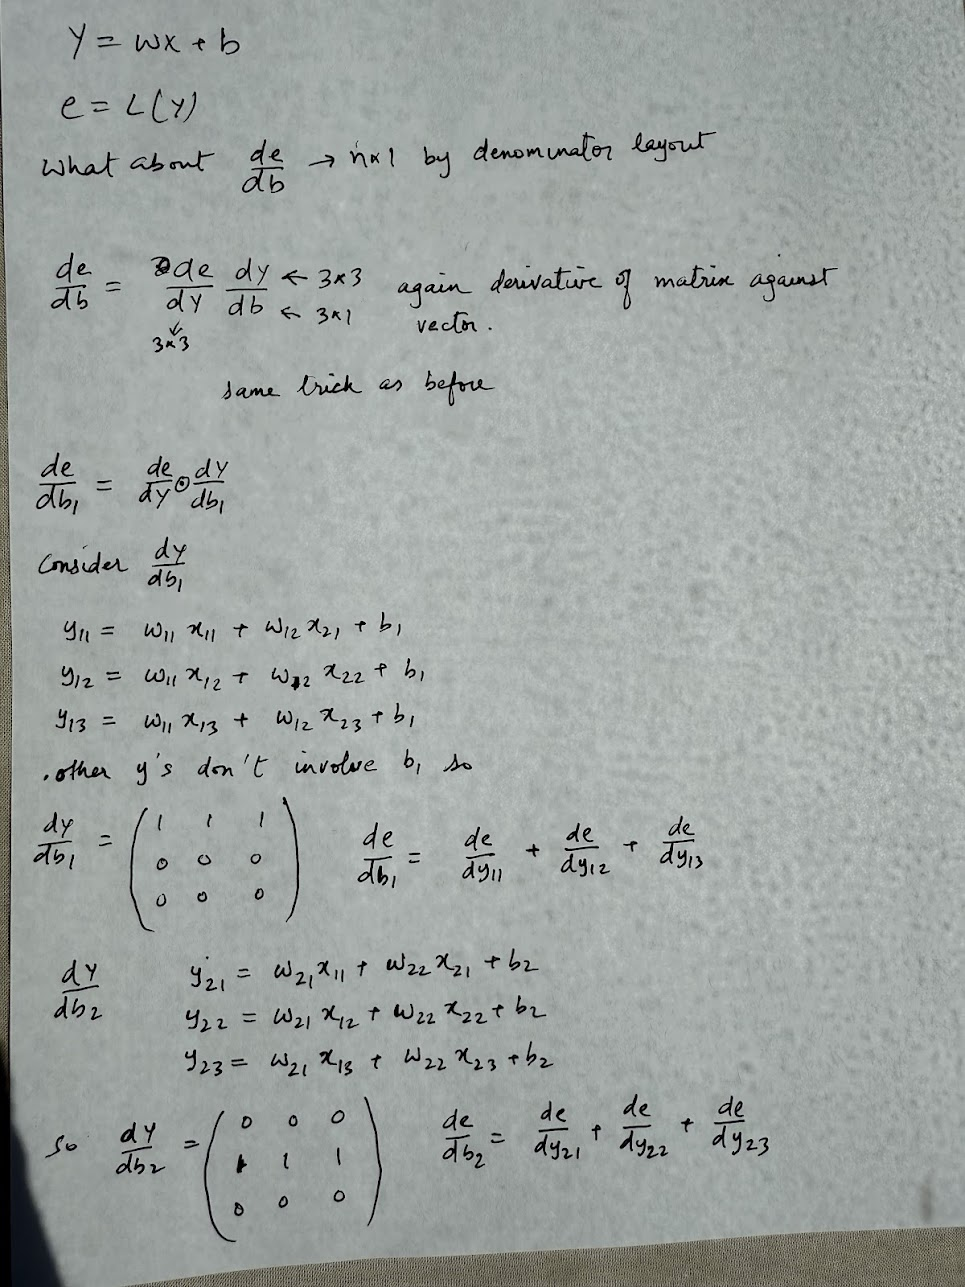 Y = wx + b
e = L(Y)
What about de/db → n×1 by denominator layout
de/db = de/dY dY/db ← 3×3 ← 3×1 again derivative of matrix against
↓ 3×3 vector.
same trick as before
de/db₁ = de/dY ⊙ dY/db₁
Consider dY/db₁
y₁₁ = w₁₁ x₁₁ + w₁₂ x₂₁ + b₁
y₁₂ = w₁₁ x₁₂ + w₁₂ x₂₂ + b₁
y₁₃ = w₁₁ x₁₃ + w₁₂ x₂₃ + b₁
. other y's don't involve b₁ so
dY/db₁ = ( 1 1 1
0 0 0
0 0 0 ) de/db₁ = de/dy₁₁ + de/dy₁₂ + de/dy₁₃
dY/db₂ y₂₁ = w₂₁ x₁₁ + w₂₂ x₂₁ + b₂
y₂₂ = w₂₁ x₁₂ + w₂₂ x₂₂ + b₂
y₂₃ = w₂₁ x₁₃ + w₂₂ x₂₃ + b₂
So dY/db₂ = ( 0 0 0
1 1 1
0 0 0 ) de/db₂ = de/dy₂₁ + de/dy₂₂ + de/dy₂₃